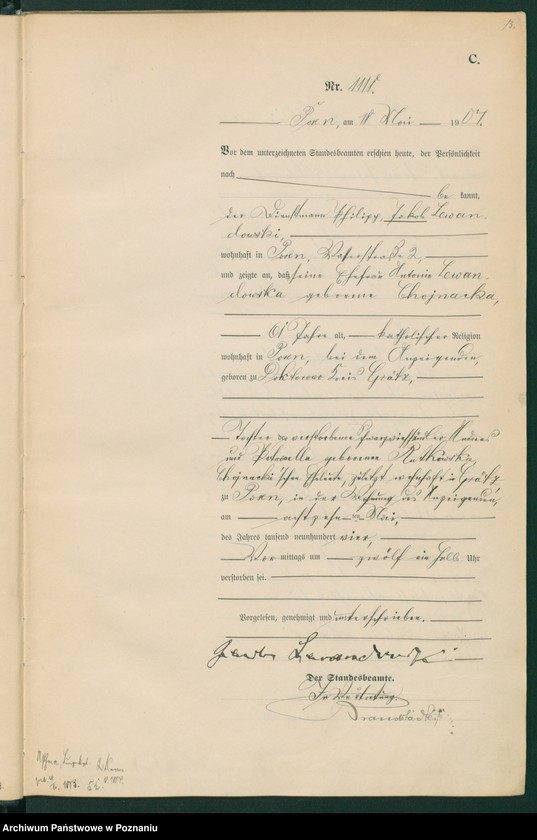 C.
Nr. 1118.
Posen, am 18 Mai 1904.
Vor dem unterzeichneten Standesbeamten erschien heute, der Persönlichkeit
nach
be kannt,
der Dienstmann Philipp, Jakob Lewan-
dowski,
wohnhaft in Posen, Wasserstraße 2,
und zeigte an, daß seine Ehefrau Antonie Lewan-
dowska geborene Chojnacka,
61 Jahre alt, katholischer Religion
wohnhaft in Posen, bei dem Anzeigenden,
geboren zu Doktorowo Kreis Grätz,
Tochter der verstorbenen
und Petronella geborenen Rutkowska,
Chojnacki'schen Eheleute, zuletzt wohnhaft in Grätz
zu Posen, in der Wohnung des Anzeigenden,
am achtzehnten Mai,
des Jahres tausend neunhundert vier,
Vor mittags um zwölf ein halb Uhr
verstorben sei.
Vorgelesen, genehmigt und unterschrieben.
Jakob Lewandowski
Der Standesbeamte.
In Vertretung.
Archiwum Państwowe w Poznaniu